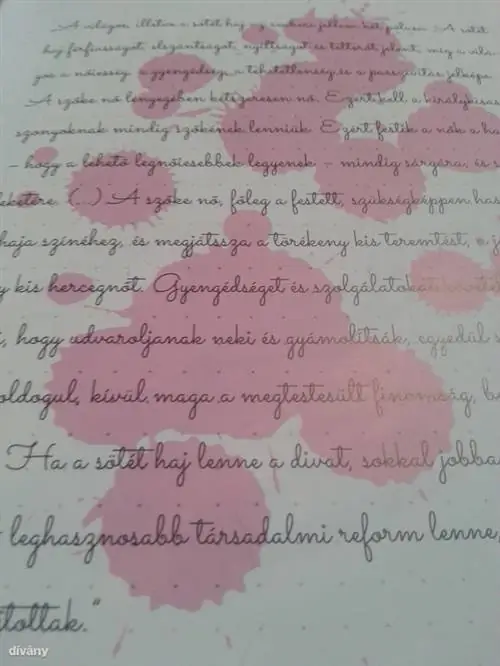 A világos, illetve a sötét haj az emberi jellem két pólusa. A sötét
haj férfiasságot, elegántságot, nyíltságot és tettvárást jelent, míg a vilá
gos a nőiesség, a gyengédség, a tehetetlenség és a passzivitás jelképe.
A szőke nő lényegében kétszeresen nő. Ezért kell a királykisas
szonyoknak mindig szőkének lenniük. Ezért festik a nők a ha
– hogy a lehető legnőiesebbek legyenek – mindig sárgára, és s
feketére. (...) A szőke nő, főleg a festett, szükségképpen has
haja színéhez, és megjátssza a törékeny kis teremtést, a j
y kis hercegnőt. Gyengédséget és szolgálatokat követel
, hogy udvaroljanak neki és gyámolítsák, egyedül
oldogul, kívül maga a megtestesült finomság, be
Ha a sötét haj lenne a divat, sokkal jobba
leghasznosabb társadalmi reform lenne,
ítottak."
dívány